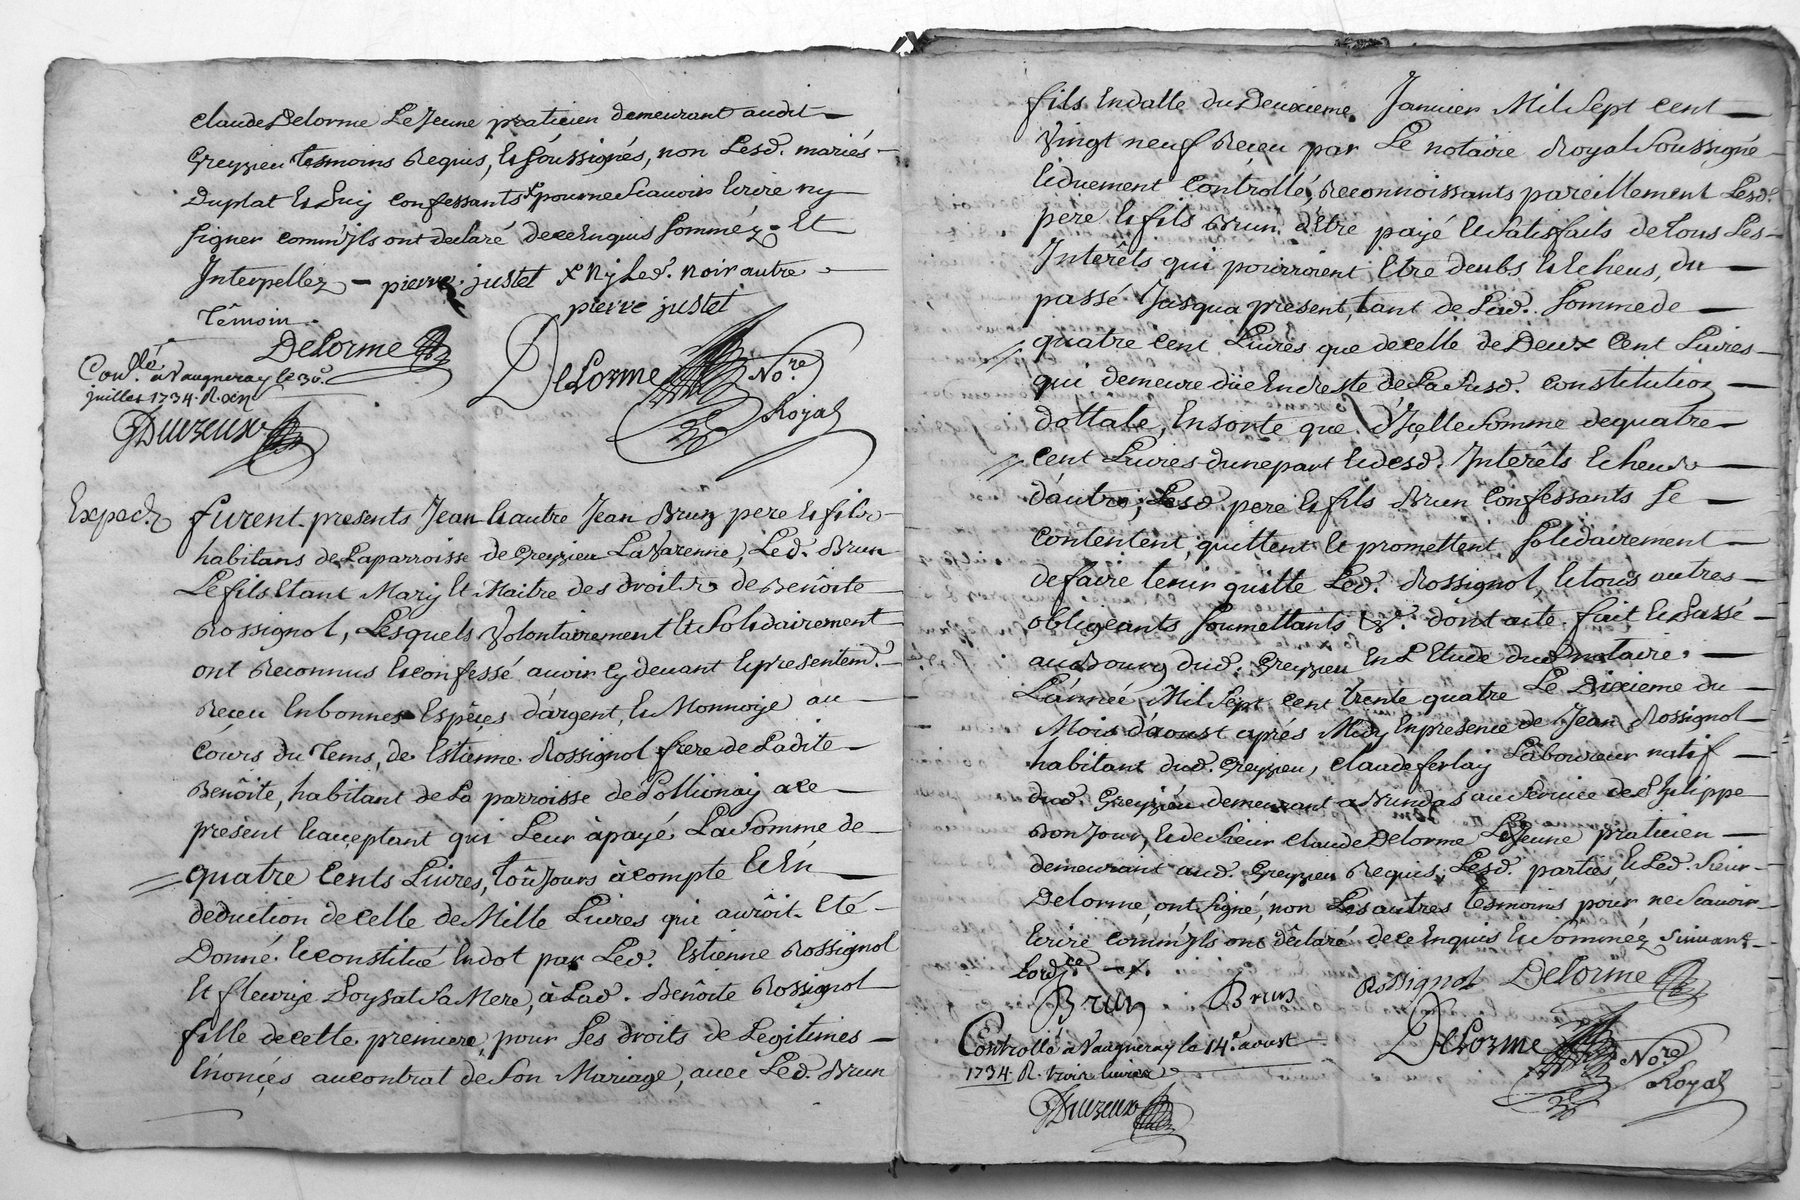 claude Delorme Le Jeune praticien demeurant audit
Greyzieu tesmoins Requis, & soussignés, non Lesd. mariés
Duplat & Luij confessants x pour ne scavoir Ecrire ny
signer comm'ils ont declaré de ce Enquis sommez - Et
Interpellez - pierre justet x Ny Led. Noir autre
Têmoin.
pierre justet
Delorme
Delorme No.re Royal
Con.llé à Vaugneray le 30.e
juillet 1734. R.
Duvzeux
Exped.
furent presents Jean & autre Jean Brun pere & fils
habitans de La parroisse de Greyzieu La Varenne, Led. Brun
Le fils Etant Mary Et Maitre des droits de Benôite
Rossignol, Lesquels Volontairement & Solidairement
ont Reconnus & confessé avoir cy devant & presentem.t
Receu En bonnes Espèces d'argent, & Monnoye au
Cours du Tems, de Estienne Rossignol frere de Ladite
Benôite, habitant de La parroisse de Pollionay a ce
present & acceptant qui Leur à payé La Somme de
quatre Cents Livres, toûjours à compte & En
deduction de celle de Mille Livres qui auroit Eté
Donné & constitué En dot par Led. Estienne Rossignol
Et fleurye Loysat Sa Mere, à Lad. Benôite Rossignol
fille de cette premiere, pour Ses droits de Legitimes
Enonçés au contrat de Son Mariage, avec Led. Brun
fils En datte du Deuxieme Janvier Mil Sept cent
Vingt neuf Receu par Le notaire Royal Soussigné
& duement Controllé, Reconnoissants pareillement Lesd.
pere & fils Brun d'être payé & Satisfaits de tous Les
Interêts qui pourroient Etre deubs & Echeus, du
passé Jusqua present, tant de Lad. Somme de
quatre cent Livres que de celle de Deux Cent Livres
qui demeure düe En Reste de La Susd. Constitution
dottale, En sorte que d'Içelle Somme de quatre
cent Livres d'une part & desd. Interêts Echeus
d'autre, Lesd. pere & fils Brun Confessants Se
contentent, quittent Et promettent Solidairement
de faire tenir quitte Led. Rossignol, & tous autres
obligeants Soumettants &c.a dont acte fait & Passé
au Bourg dud. Greyzieu En L'Etude dud. notaire
L'année Mil Sept cent trente quatre Le Dixieme du
Mois d'aoust aprés Midy En presence de Jean Rossignol
habitant dud. Greyzieu, Claude ferlay Laboureur natif
dud. Greyzieu demeurant a Brindas au Service de S.r philippe
Bon Jour, & de Sieur Claude Delorme Le Jeune praticien
demeurant aud. Greyzieu Requis, Lesd. parties & Led. Sieur
Delorme, ont Signé, non Les autres tesmoins pour ne Scavoir
Ecrire comm'ils ont déclaré de ce Enquis & Sommez Suivant
L'ord.ce
Brun Brun Rossignol Delorme
Controllé a Vaugneray le 14.e aoust
1734. R. trois livres
Duvzeux
Delorme No.re Royal